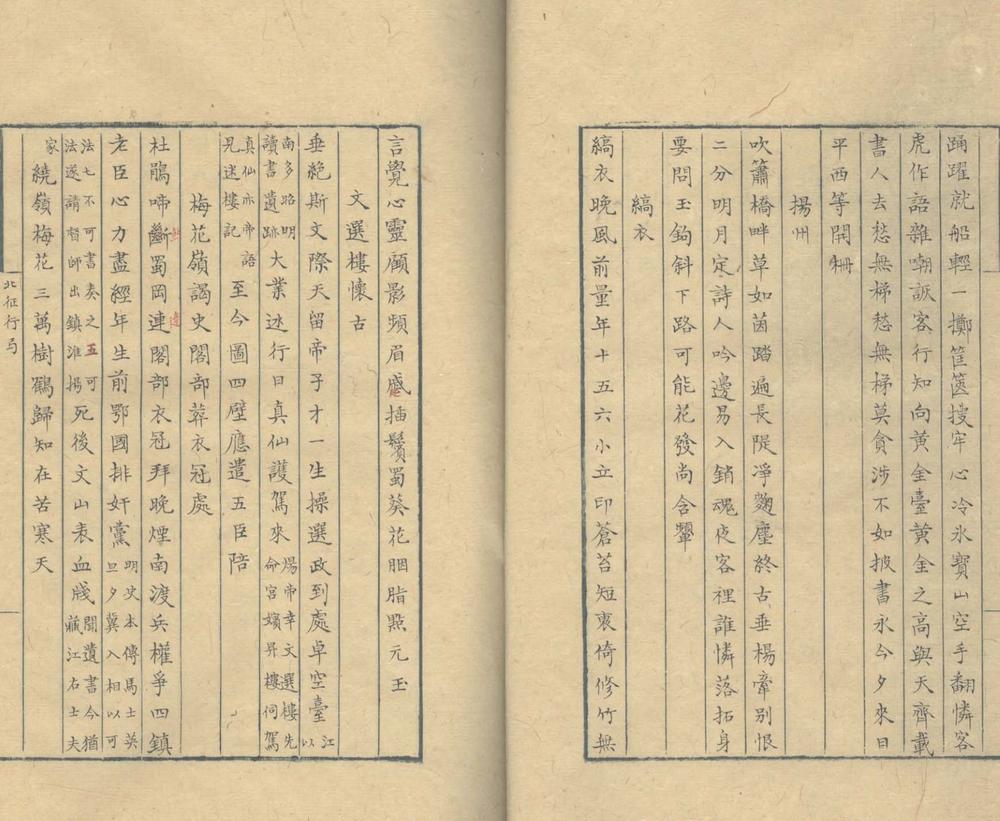 踊躍就船輕一擲筐篋搜牢心冷氷寶山空手翻憐客
虎作語雜嘲詼客行知向黃金臺黃金之高與天齊載
書人去愁無梯愁無梯莫貪涉不如披書永今夕來日
平西等閒柵
揚州
吹簫橋畔草如茵踏遍長隄凈麴塵終古垂楊牽別恨
二分明月定詩人吟邊易入銷魂夜客裡誰憐落拓身
要問玉鉤斜下路可能花發尚含顰
縞衣
縞衣晚風前量年十五六小立印蒼苔短衷倚修竹無
言覺心靈顧影頻眉慼插鬢蜀葵花胭脂點元玉
文選樓懷古
垂絕斯文際天留帝子才一生操選政到處卓空臺江以
南多昭明讀書遺跡大業迷行日真仙護駕來煬帝幸文選樓先命宮嬪昇樓伺駕
真仙亦帝語見迷樓記至今圖四壁應遣五臣陪
梅花嶺謁史閣部葬衣冠處
杜鵑啼斷蜀岡連閣部衣冠拜晚煙南渡兵權爭四鎮
老臣心力盡經年生前鄂國排奸黨明史本傳馬士英旦夕冀入相以可
法七不可書奏之五可法遂請督師出鎮淮揚死後文山表血牋聞遺書今猶藏江右士夫
家繞嶺梅花三萬樹鶴歸知在苦寒天
北征行